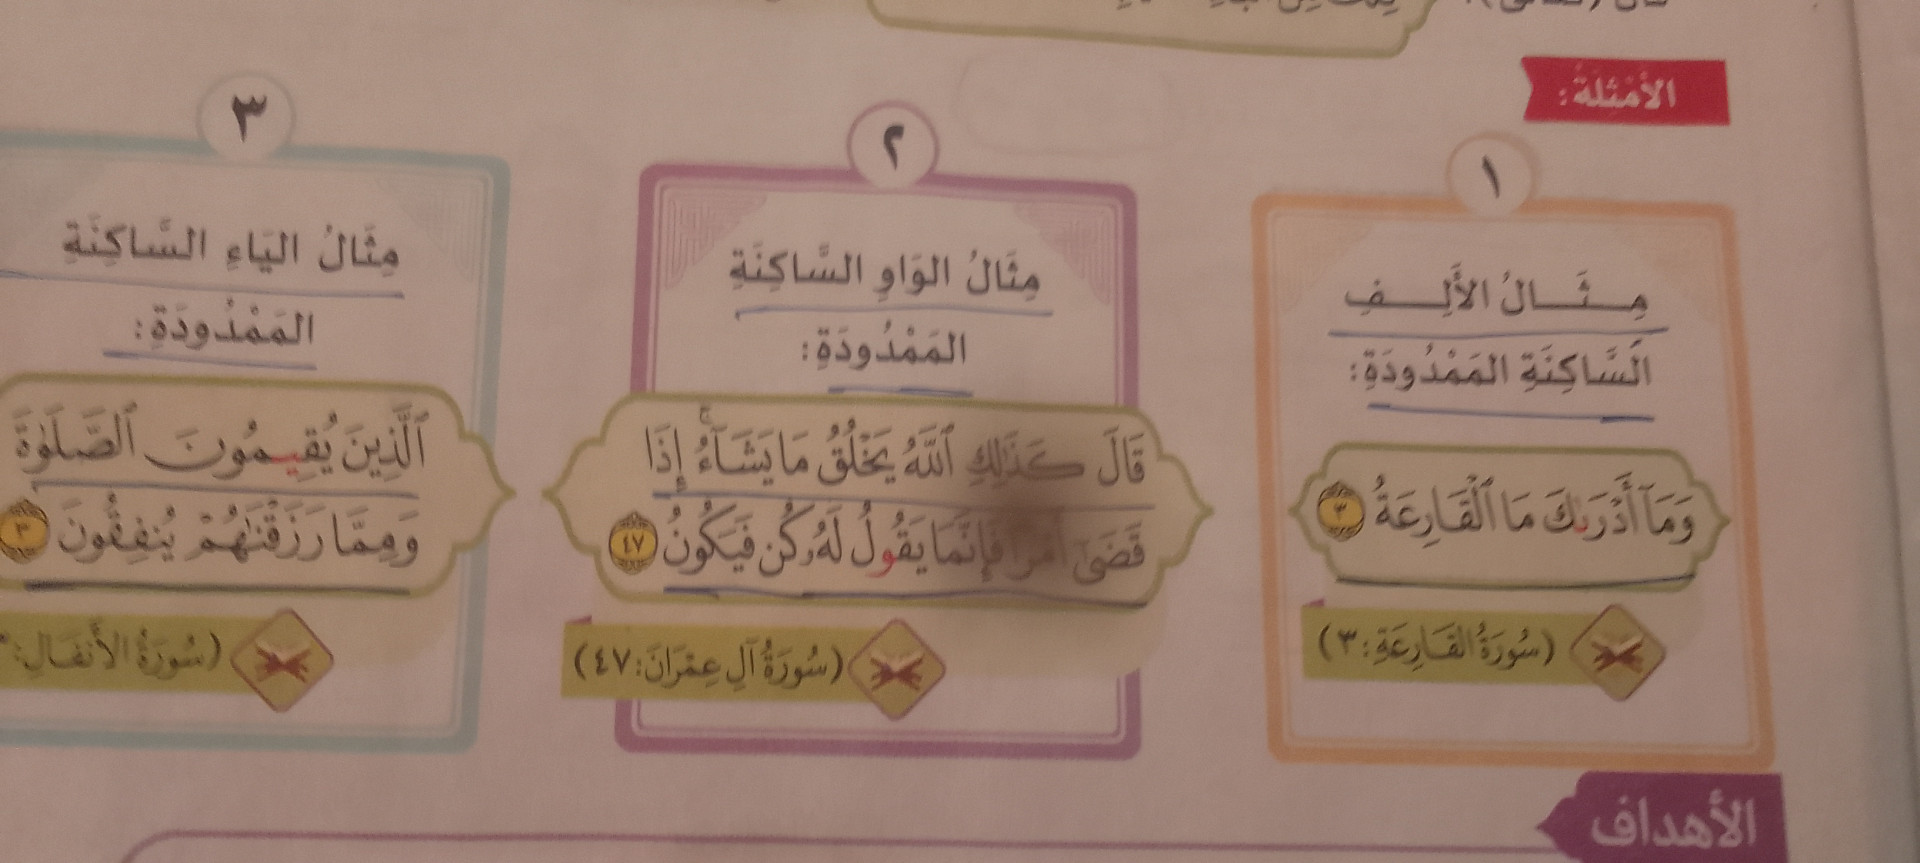 الأمثلة:
١
مِـثَـالُ الأَلِـفِ
السَّاكِنَةِ المَمْدُودَةِ:
وَمَآ أَدْرَىٰكَ مَا ٱلْقَارِعَةُ ٣
(سُورَةُ القَارِعَةِ: ٣)
٢
مِثَالُ الوَاوِ السَّاكِنَةِ
المَمْدُودَةِ:
قَالَ كَذَٰلِكِ ٱللَّهُ يَخْلُقُ مَا يَشَآءُ ۚ إِذَا
قَضَىٰٓ أَمْرًا فَإِنَّمَا يَقُولُ لَهُۥ كُن فَيَكُونُ ٤٧
(سُورَةُ آلِ عِمْرَانَ: ٤٧)
٣
مِثَالُ اليَاءِ السَّاكِنَةِ
المَمْدُودَةِ:
ٱلَّذِينَ يُقِيمُونَ ٱلصَّلَوٰةَ
وَمِمَّا رَزَقْنَٰهُمْ يُنفِقُونَ ٣
(سُورَةُ الأَنفَالِ:
الأهداف